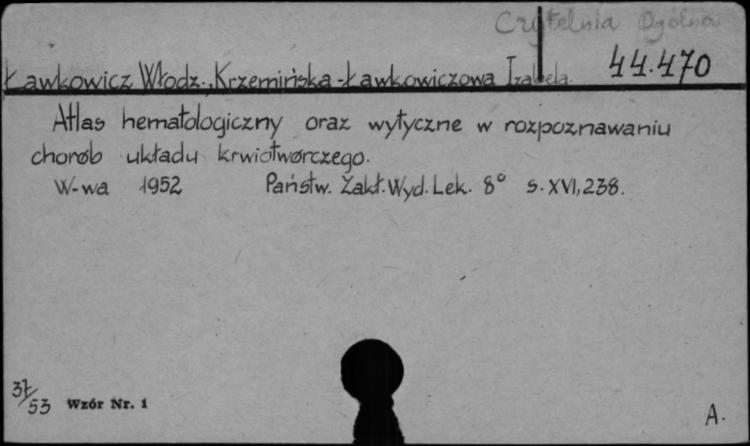 Czytelnia Ogólna
Ławkowicz Włodz., Krzemińska-Ławkowiczowa Izabela. 44.470
Atlas hematologiczny oraz wytyczne w rozpoznawaniu
chorób układu krwiotwórczego.
W-wa 1952 Państw. Zakł. Wyd. Lek. 8° s. XVI, 238.
37/53 Wzór Nr. 1
A.